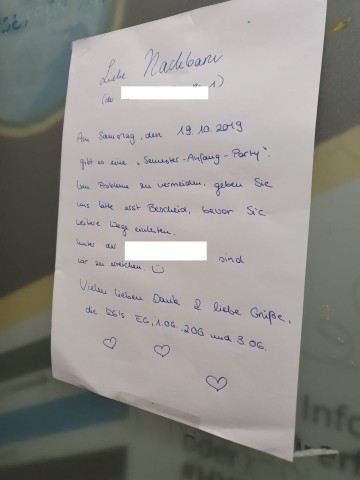 Liebe Nachbarn
(der 1)
Am Samstag, den 19.10.2019
gibt es eine „Semester-Anfang-Party".
Um Probleme zu vermeiden, geben Sie
uns bitte erst Bescheid, bevor Sie
weitere Wege einleiten.
Unter der sind
wir zu erreichen.
Vielen lieben Dank & liebe Grüße,
die WG's EG, 1.OG, 2OG und 3.OG.
Info
oder